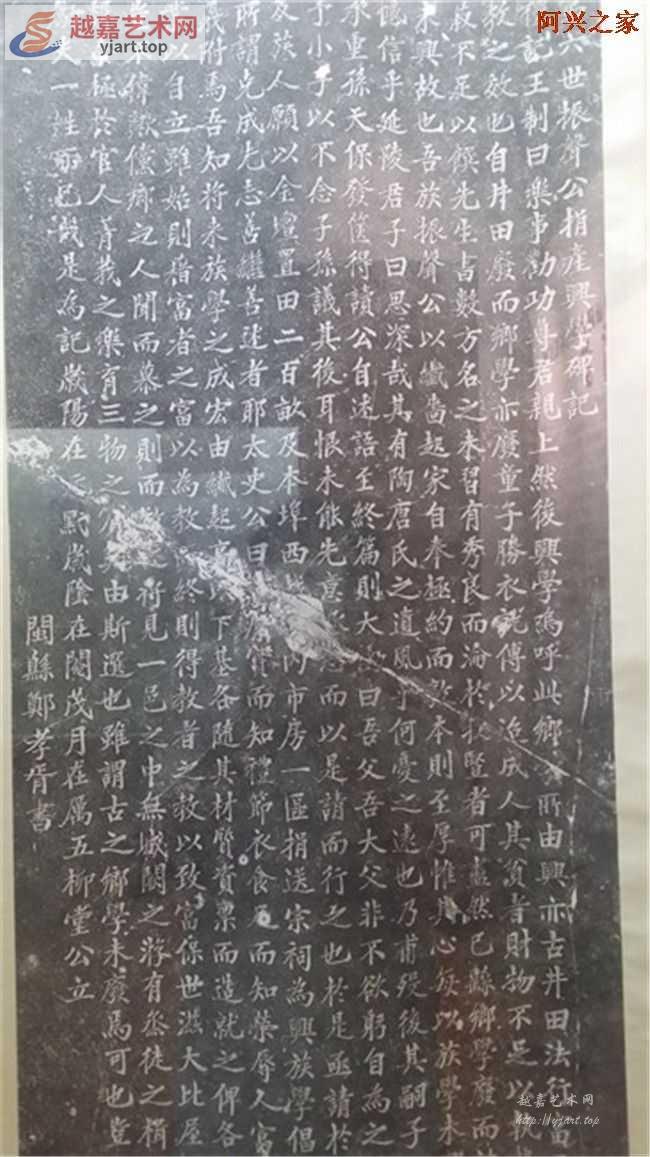 越嘉艺术网
yjart.top
阿兴之家
六世振聲公捐產興學碑記
記王制曰樂事勸功尊君親上然後興學嗚呼此鄉學所由興亦古井田法行富
教之效也自井田廢而鄉學亦廢童子勝衣就傅以迄成人其貧者財物不足以執
故不足以饌先生書數方名之未習有秀良而淪於牧豎者可盡然已縣鄉學廢而
未興故也吾族振聲公以纖嗇起家自奉極約而敦本則至厚惟其心每以族學未
信乎延陵君子曰思深哉其有陶唐氏之遺風乎何憂之遠也乃甫歿後其嗣子
重孫天保發篋得讀公自述語至終篇則大曰吾父吾大父非不欲躬自為之
小子以不念子孫議其後耳恨未能先意而以是請而行之也於是亟請於
人願以金壇置田二百畝及本埠西市房一區捐送宗祠為興族學倡
所謂克成先志善繼善述者耶太史公曰而知禮節衣食足而知榮辱人富
附焉吾知將來族學之成宏由纖起下基各隨其材質資稟而造就之俾各
自立雖始則藉富者之富以為教終則得教者之教以致富保世滋大比屋
儻鄉之人聞而慕之則而將見一邑之中無城闕之游有丞徒之楫
極於官人菁莪之樂育三物之由斯選也雖謂古之鄉學未廢焉可也豈
一姓而已哉是為記歲陽在黓歲陰在閹茂月在厲五柳堂公立
閩縣鄭孝胥書
越嘉艺术网
http://yjart.top